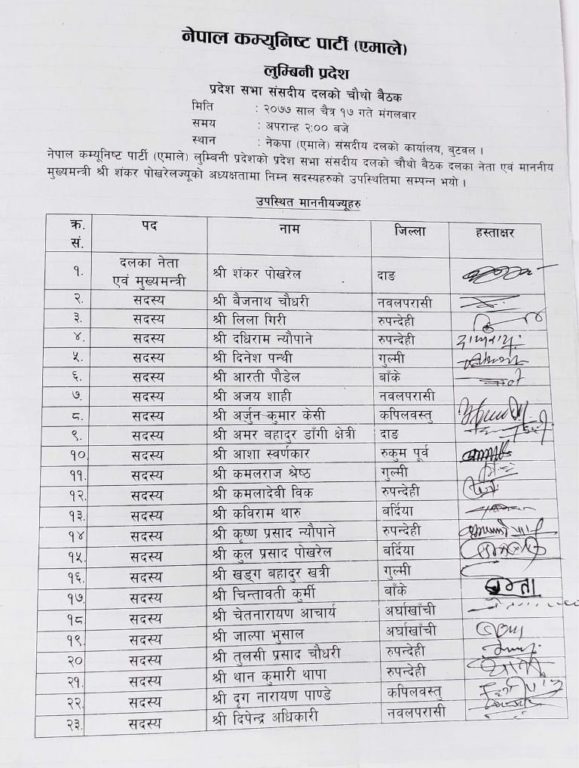 नेपाल कम्युनिष्ट पार्टी (एमाले)
लुम्बिनी प्रदेश
प्रदेश सभा संसदीय दलको चौथो बैठक
मिति : २०७७ साल चैत्र १७ गते मंगलबार
समय : अपरान्ह २:०० बजे
स्थान : नेकपा (एमाले) संसदीय दलको कार्यालय, बुटवल ।
नेपाल कम्यूनिष्ट पार्टी (एमाले) लुम्बिनी प्रदेशको प्रदेश सभा संसदीय दलको चौथो बैठक दलका नेता एवं माननीय
मुख्यमन्त्री श्री शंकर पोखरेलज्यूको अध्यक्षतामा निम्न सदस्यहरुको उपस्थितिमा सम्पन्न भयो ।
उपस्थित माननीयज्यूहरु
क्र. सं. पद नाम जिल्ला हस्ताक्षर
१. दलका नेता एवं मुख्यमन्त्री श्री शंकर पोखरेल दाङ
२. सदस्य श्री बैजनाथ चौधरी नवलपरासी
३. सदस्य श्री लिला गिरी रुपन्देही
४. सदस्य श्री दधिराम न्यौपाने रुपन्देही
५. सदस्य श्री दिनेश पन्थी गुल्मी
६. सदस्य श्री आरती पौडेल बाँके
७. सदस्य श्री अजय शाही नवलपरासी
८. सदस्य श्री अर्जुन कुमार केसी कपिलवस्तु
९. सदस्य श्री अमर बहादुर डाँगी क्षेत्री दाङ
१० सदस्य श्री आशा स्वर्णकार रुकुम पूर्व
११. सदस्य श्री कमलराज श्रेष्ठ गुल्मी
१२. सदस्य श्री कमलादेवी विक रुपन्देही
१३. सदस्य श्री कविराम थारु बर्दिया
१४ सदस्य श्री कृष्ण प्रसाद न्यौपाने रुपन्देही
१५. सदस्य श्री कुल प्रसाद पोखरेल बर्दिया
१६. सदस्य श्री खड्ग बहादुर खत्री गुल्मी
१७. सदस्य श्री चिन्तावती कुर्मी बाँके
१८ सदस्य श्री चेतनारायण आचार्य अर्घाखाँची
१९. सदस्य श्री जाल्पा भुसाल अर्घाखाँची
२० सदस्य श्री तुलसी प्रसाद चौधरी रुपन्देही
२१. सदस्य श्री थान कुमारी थापा रुपन्देही
२२. सदस्य श्री दृग नारायण पाण्डे कपिलवस्तु
२३. सदस्य श्री दिपेन्द्र अधिकारी नवलपरासी